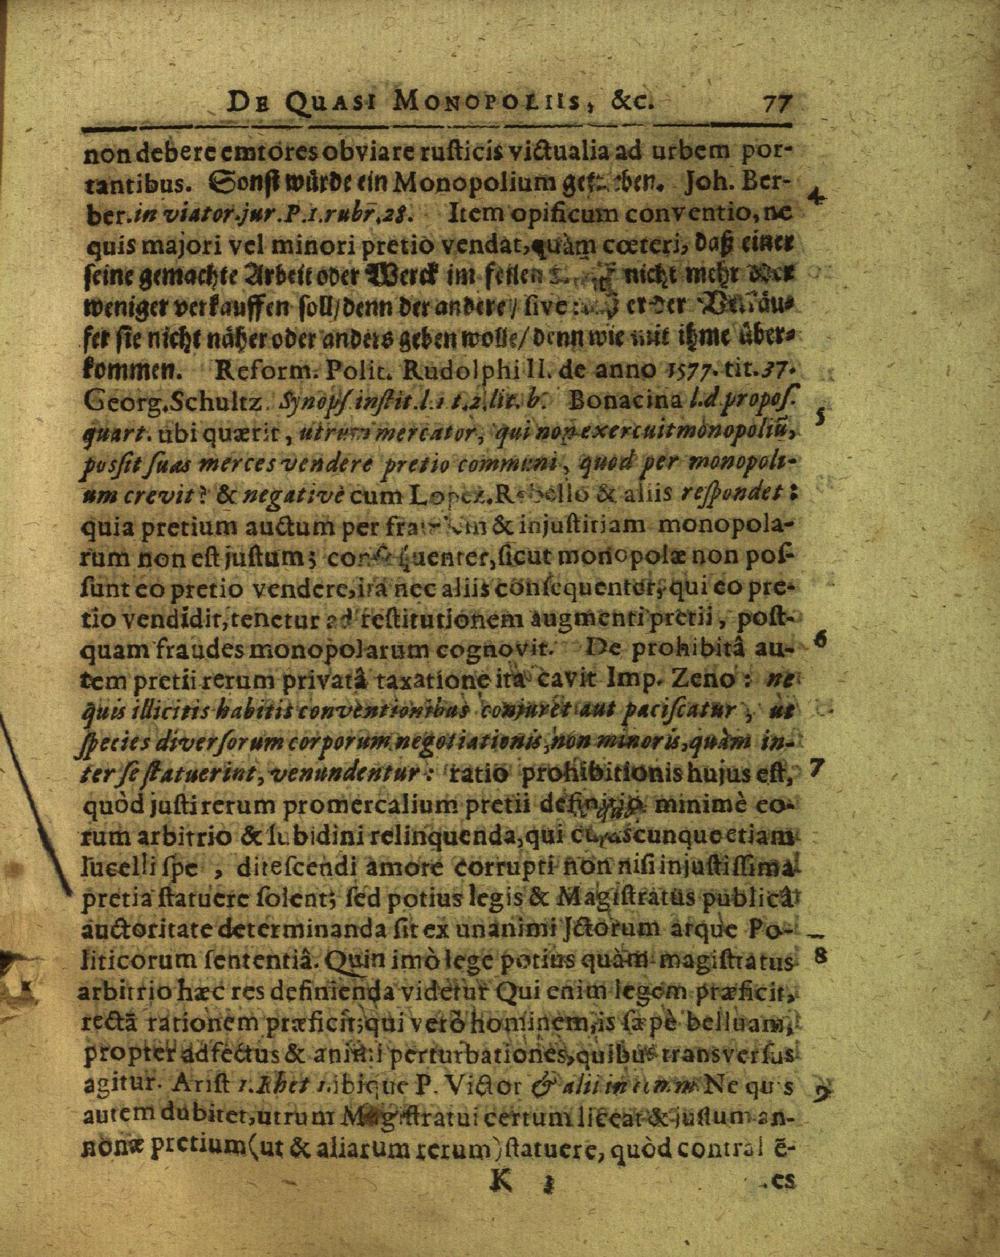 DE QUASI MONOPOLIIS, &c. 77
non debere emtores obviare rusticis victualia ad urbem por-
tantibus. Sonst würde ein Monopolium Joh. Ber- 4
ber. in viator. jur. P. 1. rubr. 28. Item opificum conventio, ne
quis majori vel minori pretio vendat, quàm cœteri, daß einer
seine gemachte Arbeit oder Werck im feilen nicht mehr oder
weniger verkauffen soll / denn der andere / sive
fer sie nicht näher oder anders geben wolle / denn wie mit ihme über-
kommen. Reform. Polit. Rudolphi II. de anno 1577. tit. 37.
Georg. Schultz. Synops. instit. l. 1 t. 2. lit. b. Bonacina l. d. propos.
quart. ubi quærit, utrum mercator, qui non exercuit monopoliũ, 5
possit suas merces vendere pretio communi, quod per monopoli-
um crevit? & negativè cum Lopez. Rebello & aliis respondet:
quia pretium auctum per fraudem & injustitiam monopola-
rum non est justum; consequenter, sicut monopolæ non pos-
sunt eo pretio vendere, ita nec aliis consequenter, qui eo pre-
tio vendidit, tenetur ad restitutionem augmenti pretii, post-
quam fraudes monopolarum cognovit. De prohibitâ au- 6
tem pretii rerum privatâ taxatione ita cavit Imp. Zeno: ne
quis illicitis habitis conventionibus conjuret aut paciscatur, ut
species diversorum corporum negotiationis, non minoris, quàm in-
ter se statuerint, venundentur: ratio prohibitionis hujus est, 7
quòd justi rerum promercalium pretii definitio minimè eo-
rum arbitrio & lubidini relinquenda, qui cujuscunque etiam
lucelli spe, ditescendi amore corrupti non nisi injustissima
pretia statuere solent; sed potius legis & Magistratûs publicâ
auctoritate determinanda sit ex unanimi JCtorum atque Po-
liticorum sententiâ. Quin imò lege potius quàm magistratus 8
arbitrio hæc res definienda videtur Qui enim legem præficit,
rectã rationem præficit; qui verò hominem, is sæpè belluam,
propter adfectus & animi perturbationes, quibus transversus
agitur. Arist 1. Rhet 1. ibique P. Victor & alii in Ne quis 9
autem dubitet, utrum Magistratui certum liceat & justum an-
nonæ pretium (ut & aliarum rerum) statuere, quòd contra
K 3 es